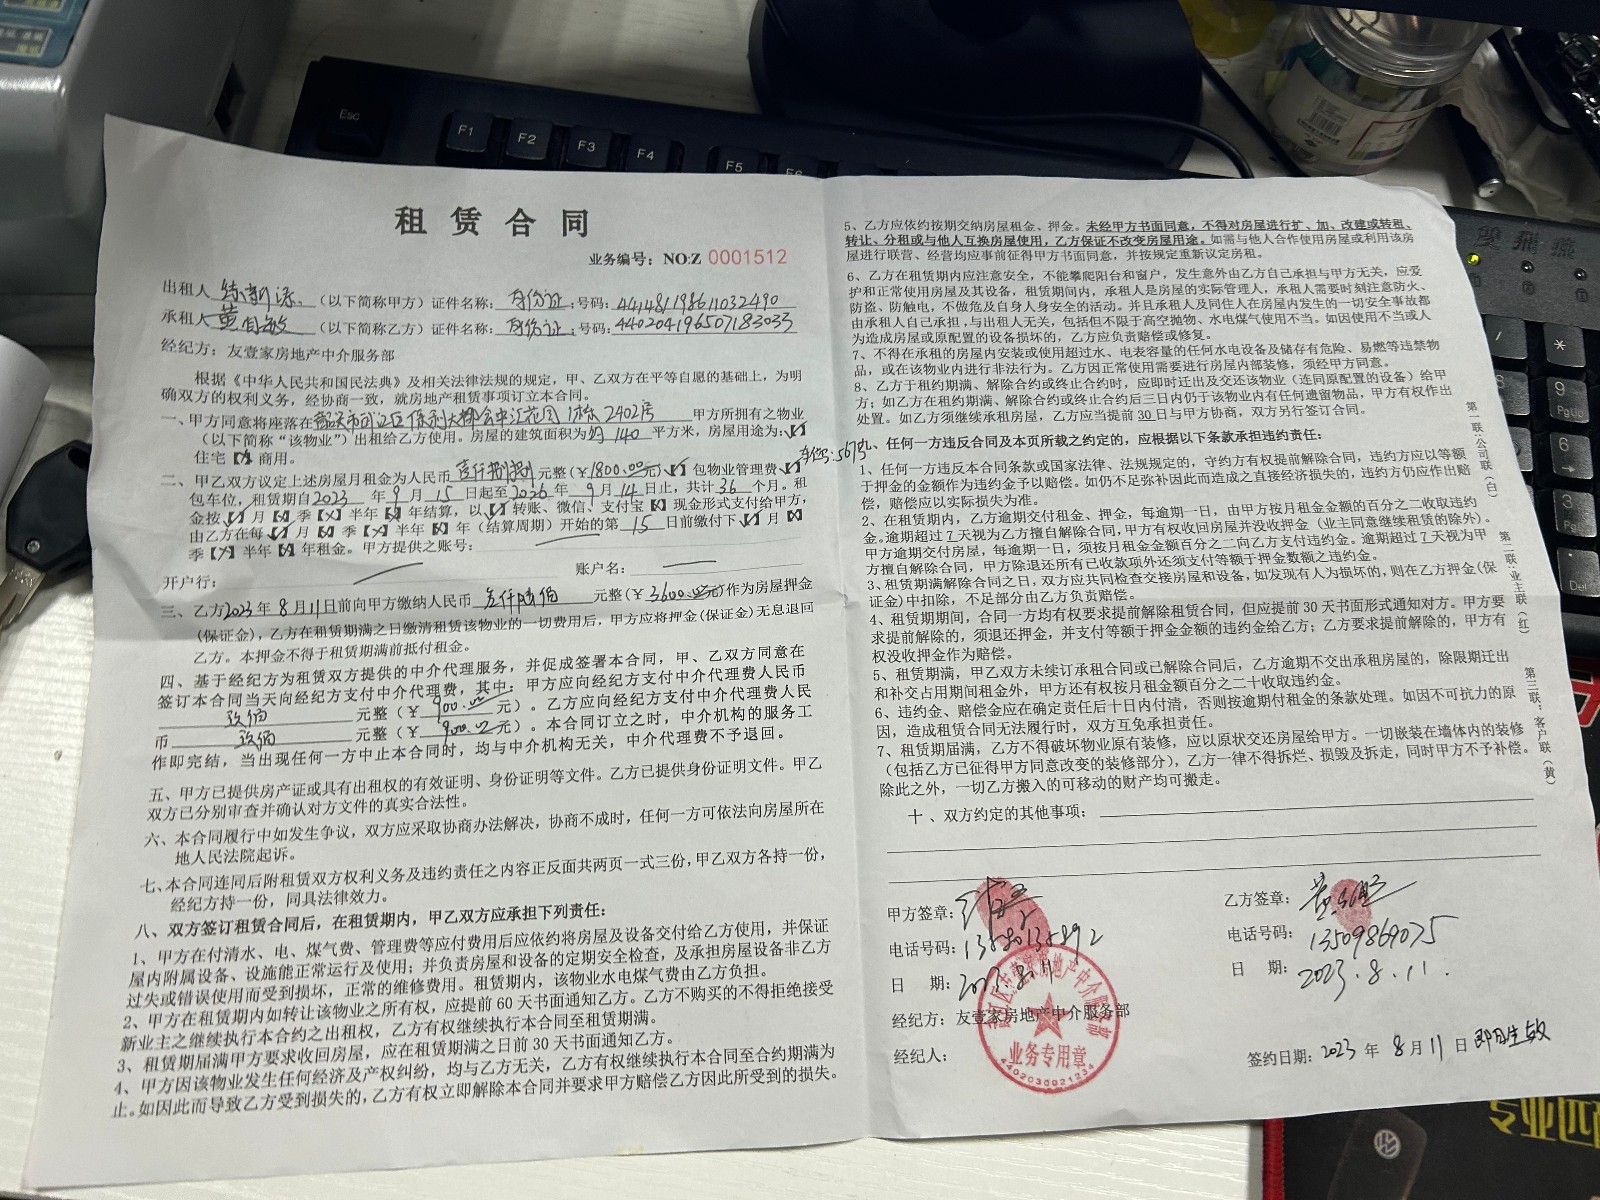 Esc
F1
F2
F3
F4
F5
租赁合同
业务编号：NO:Z 0001512
出租人（以下简称甲方）证件名称：身份证；号码：441481198611032490
承租人 黄 敏（以下简称乙方）证件名称：身份证；号码：440204196507183033
经纪方：友壹家房地产中介服务部
根据《中华人民共和国民法典》及相关法律法规的规定，甲、乙双方在平等自愿的基础上，为明
确双方的权利义务，经协商一致，就房地产租赁事项订立本合同。
一、甲方同意将座落在韶关市浈江区保利大都会中江花园1栋2402房 甲方所拥有之物业
（以下简称“该物业”）出租给乙方使用。房屋的建筑面积为约140平方米，房屋用途为：【√】
住宅【X】商用。
车位：567
二、甲乙双方议定上述房屋月租金为人民币壹仟捌佰元整（¥1800.00元）【√】包物业管理费【√】
包车位，租赁期自2023年9月15日起至2026年9月14日止，共计36个月。租
金按【√】月【X】季【X】半年【X】年结算，以【√】转账、微信、支付宝【X】现金形式支付给甲方，
由乙方在每【√】月【X】季【X】半年【X】年（结算周期）开始的第15日前缴付下【√】月【X】
季【X】半年【X】年租金。甲方提供之账号：
开户行： 账户名：
三、乙方2023年8月11日前向甲方缴纳人民币叁仟陆佰元整（¥3600.00元）作为房屋押金
（保证金），乙方在租赁期满之日缴清租赁该物业的一切费用后，甲方应将押金（保证金）无息退回
乙方。本押金不得于租赁期满前抵付租金。
四、基于经纪方为租赁双方提供的中介代理服务，并促成签署本合同，甲、乙双方同意在
签订本合同当天向经纪方支付中介代理费，其中：甲方应向经纪方支付中介代理费人民币
玖佰元整（¥900.00元）。乙方应向经纪方支付中介代理费人民
币玖佰元整（¥900.00元）。本合同订立之时，中介机构的服务工
作即完结，当出现任何一方中止本合同时，均与中介机构无关，中介代理费不予退回。
五、甲方已提供房产证或具有出租权的有效证明、身份证明等文件。乙方已提供身份证明文件。甲乙
双方已分别审查并确认对方文件的真实合法性。
六、本合同履行中如发生争议，双方应采取协商办法解决，协商不成时，任何一方可依法向房屋所在
地人民法院起诉。
七、本合同连同后附租赁双方权利义务及违约责任之内容正反面共两页一式三份，甲乙双方各持一份，
经纪方持一份，同具法律效力。
八、双方签订租赁合同后，在租赁期内，甲乙双方应承担下列责任：
1、甲方在付清水、电、煤气费、管理费等应付费用后应依约将房屋及设备交付给乙方使用，并保证
屋内附属设备、设施能正常运行及使用；并负责房屋和设备的定期安全检查，及承担房屋设备非乙方
过失或错误使用而受到损坏，正常的维修费用。租赁期内，该物业水电煤气费由乙方负担。
2、甲方在租赁期内如转让该物业之所有权，应提前60天书面通知乙方。乙方不购买的不得拒绝接受
新业主之继续执行本合约之出租权，乙方有权继续执行本合同至租赁期满。
3、租赁期届满甲方要求收回房屋，应在租赁期满之日前30天书面通知乙方。
4、甲方因该物业发生任何经济及产权纠纷，均与乙方无关，乙方有权继续执行本合同至合约期满为
止。如因此而导致乙方受到损失的，乙方有权立即解除本合同并要求甲方赔偿乙方因此所受到的损失。
5、乙方应依约按期交纳房屋租金、押金。未经甲方书面同意，不得对房屋进行扩、加、改建或转租、
转让、分租或与他人互换房屋使用，乙方保证不改变房屋用途。如需与他人合作使用房屋或利用该房
屋进行联营、经营均应事前征得甲方书面同意，并按规定重新议定房租。
6、乙方在租赁期内应注意安全，不能攀爬阳台和窗户，发生意外由乙方自己承担与甲方无关，应爱
护和正常使用房屋及其设备，租赁期间内，承租人是房屋的实际管理人，承租人需要时刻注意防火、
防盗、防触电，不做危及自身人身安全的活动。并且承租人及同住人在房屋内发生的一切安全事故都
由承租人自己承担，与出租人无关，包括但不限于高空抛物、水电煤气使用不当。如因使用不当或人
为造成房屋或原配置的设备损坏的，乙方应负责赔偿或修复。
7、不得在承租的房屋内安装或使用超过水、电表容量的任何水电设备及储存有危险、易燃等违禁物
品，或在该物业内进行非法行为。乙方因正常使用需要进行房屋内部装修，须经甲方同意。
8、乙方于租约期满、解除合约或终止合约时，应即时迁出及交还该物业（连同原配置的设备）给甲
方；如乙方在租约期满、解除合约或终止合约后三日内仍于该物业内有任何遗留物品，甲方有权作出
处置。如乙方须继续承租房屋，乙方应当提前30日与甲方协商，双方另行签订合同。
九、任何一方违反合同及本页所载之约定的，应根据以下条款承担违约责任：
1、任何一方违反本合同条款或国家法律、法规规定的，守约方有权提前解除合同，违约方应以等额
于押金的金额作为违约金予以赔偿。如仍不足弥补因此而造成之直接经济损失的，违约方仍应作出赔
偿，赔偿应以实际损失为准。
2、在租赁期内，乙方逾期交付租金、押金，每逾期一日，由甲方按月租金金额的百分之二收取违约
金。逾期超过7天视为乙方擅自解除合同，甲方有权收回房屋并没收押金（业主同意继续租赁的除外）。
甲方逾期交付房屋，每逾期一日，须按月租金金额百分之二向乙方支付违约金。逾期超过7天视为甲
方擅自解除合同，甲方除退还所有已收款项外还须支付等额于押金数额之违约金。
3、租赁期满解除合同之日，双方应共同检查交接房屋和设备，如发现有人为损坏的，则在乙方押金（保
证金）中扣除，不足部分由乙方负责赔偿。
4、租赁期期间，合同一方均有权要求提前解除租赁合同，但应提前30天书面形式通知对方。甲方要
求提前解除的，须退还押金，并支付等额于押金金额的违约金给乙方；乙方要求提前解除的，甲方有
权没收押金作为赔偿。
5、租赁期满，甲乙双方未续订承租合同或已解除合同后，乙方逾期不交出承租房屋的，除限期迁出
和补交占用期间租金外，甲方还有权按月租金金额百分之二十收取违约金。
6、违约金、赔偿金应在确定责任后十日内付清，否则按逾期付租金的条款处理。如因不可抗力的原
因，造成租赁合同无法履行时，双方互免承担责任。
7、租赁期届满，乙方不得破坏物业原有装修，应以原状交还房屋给甲方。一切嵌装在墙体内的装修
（包括乙方已征得甲方同意改变的装修部分），乙方一律不得拆烂、损毁及拆走，同时甲方不予补偿。
除此之外，一切乙方搬入的可移动的财产均可搬走。
十、双方约定的其他事项：
甲方签章：
电话号码：13580135892
日 期：2023.8.11
经纪方：友壹家房地产中介服务部
经纪人：
乙方签章：
电话号码：13509869075
日 期：2023.8.11.
签约日期：2023年8月11日即日生效
业务专用章
4402030021234
第一联：公司联（白）
第二联：业主联（红）
第三联：客户联（黄）
雙飛燕
Del